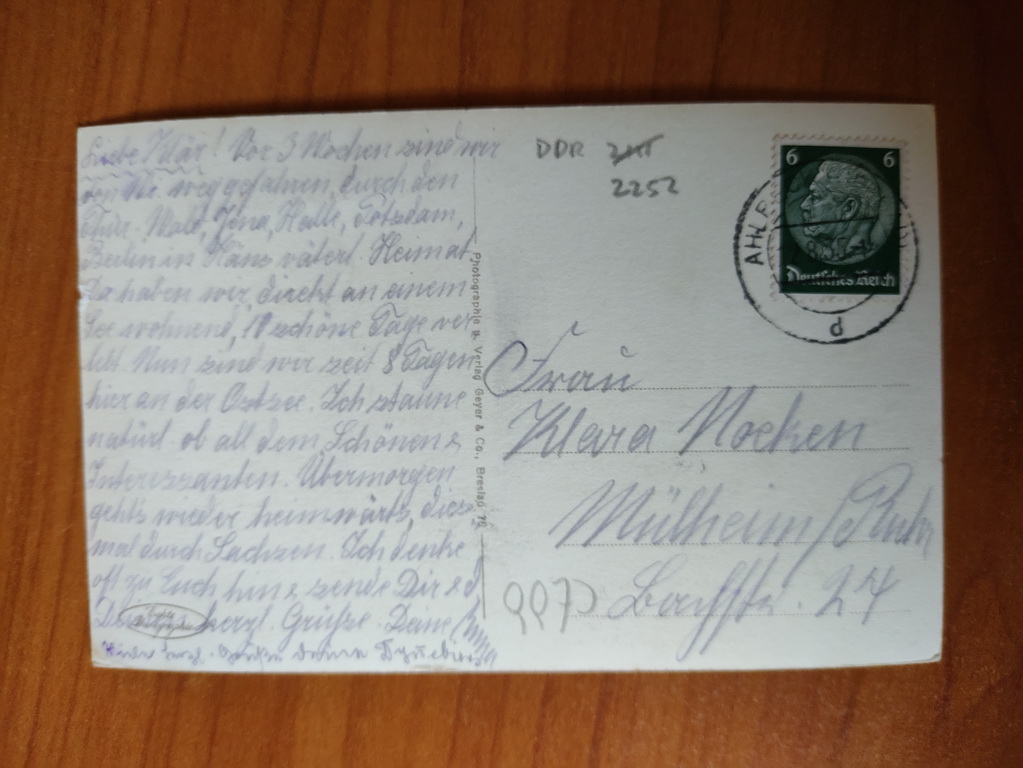 Liebe Klär! Vor 3 Wochen sind wir
von weggefahren, durch den
Thür. Wald, Jena, Halle, Potsdam,
Berlin in Häns väterl. Heimat.
Da haben wir, direkt an einem
See wohnend, 10 schöne Tage ver
lebt. Nun sind wir seit 8 Tagen
hier an der Ostsee. Ich staune
natürl. ob all dem Schönen &
Interessanten. Übermorgen
gehts wieder heimwärts, dies
mal durch Sachsen. Ich denke
oft zu Euch hin & sende Dir &
herzl. Grüße. Deine
herzl. Grüße
Photographie u. Verlag Geyer & Co., Breslau 10
DDR
2252
6 6
Deutsches Reich
AHLB
d
Frau
Klara Nocken
Mülheim/Ruhr
Bachstr. 27